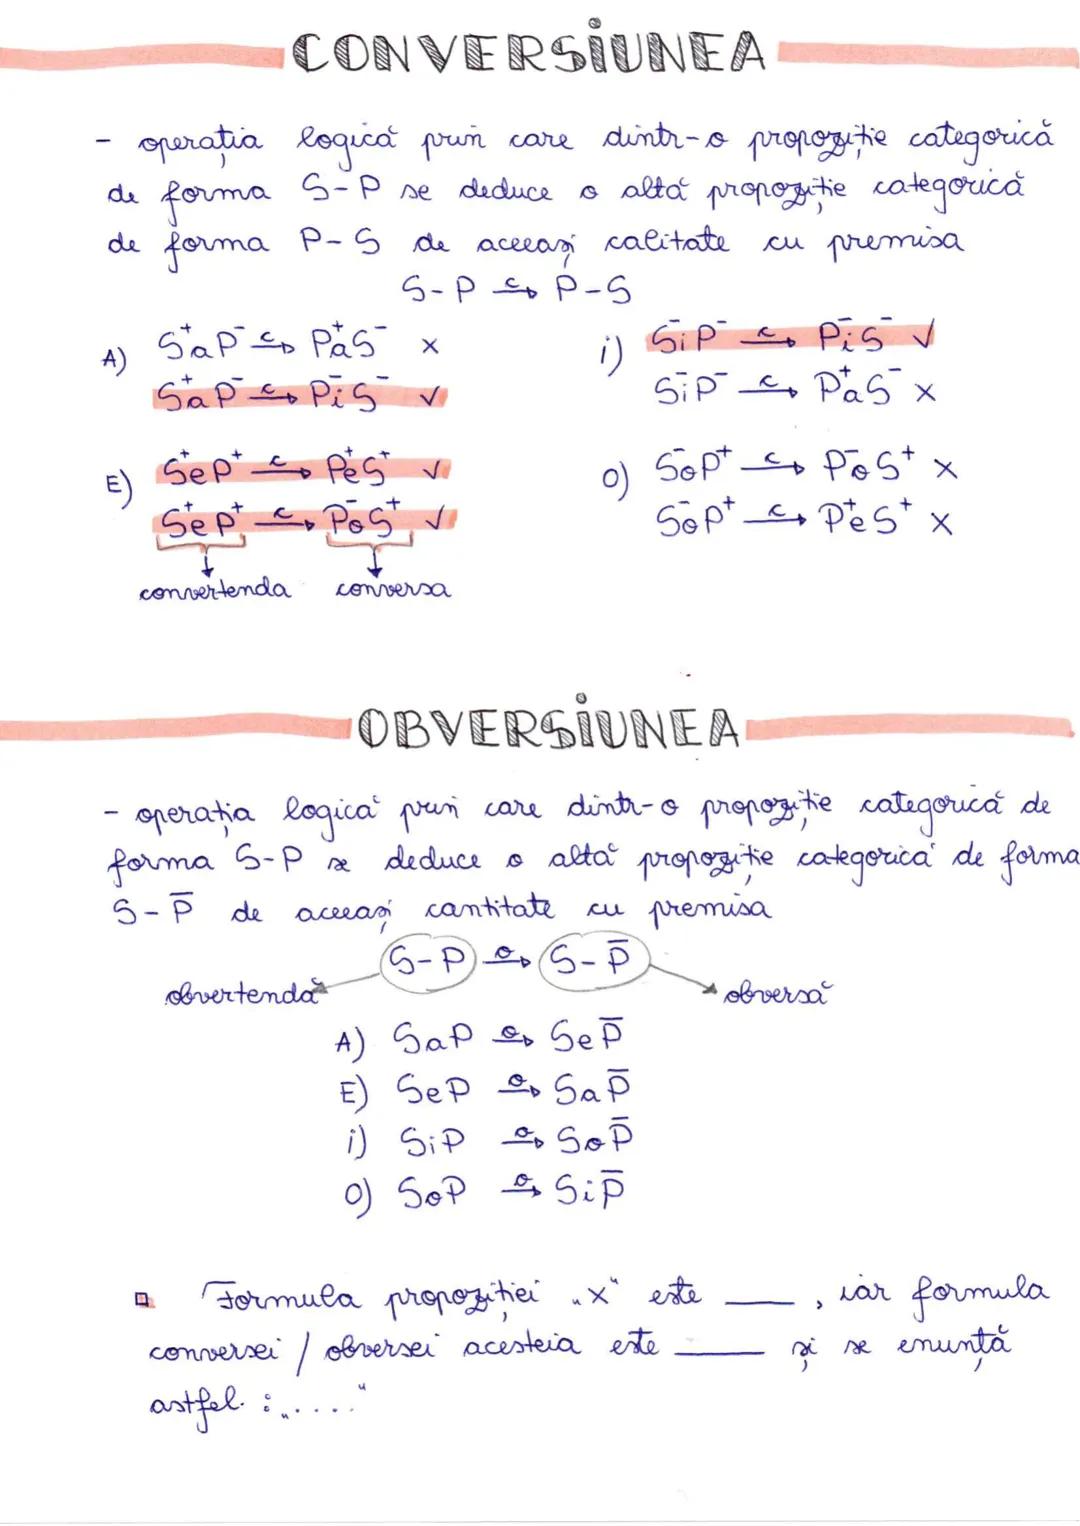 CONVERSiUNEA
- operația logică prin care dintr-o propoziție categorică
de forma S-P se deduce o altă propoziție categorică
de forma P-S de aceeași calitate cu premisa
S-P →ᶜ P-S
A) S⁺aP⁻ →ᶜ P⁺aS⁻ ×
S⁺aP⁻ →ᶜ P⁻iS⁻ ✓
E) S⁺eP⁺ →ᶜ P⁺eS⁺ ✓
S⁺eP⁺ →ᶜ P⁻oS⁺ ✓
convertenda conversa
i) S⁻iP⁻ →ᶜ P⁻iS⁻ ✓
S⁻iP⁻ →ᶜ P⁺aS⁻ ×
O) S⁻oP⁺ →ᶜ P⁻oS⁺ ×
S⁻oP⁺ →ᶜ P⁺eS⁺ ×
OBVERSiUNEA
- operația logică prin care dintr-o propoziție categorică de
forma S-P se deduce o altă propoziție categorică de forma
S-P̅ de aceeași cantitate cu premisa
S-P →ᵒ S-P̅
obvertendă obversă
A) SaP →ᵒ SeP̅
E) SeP →ᵒ SaP̅
i) SiP →ᵒ SoP̅
O) SoP →ᵒ SiP̅
Formula propoziției „X" este ___, iar formula
conversei / obversei acesteia este ___ și se enunță
astfel: „....."